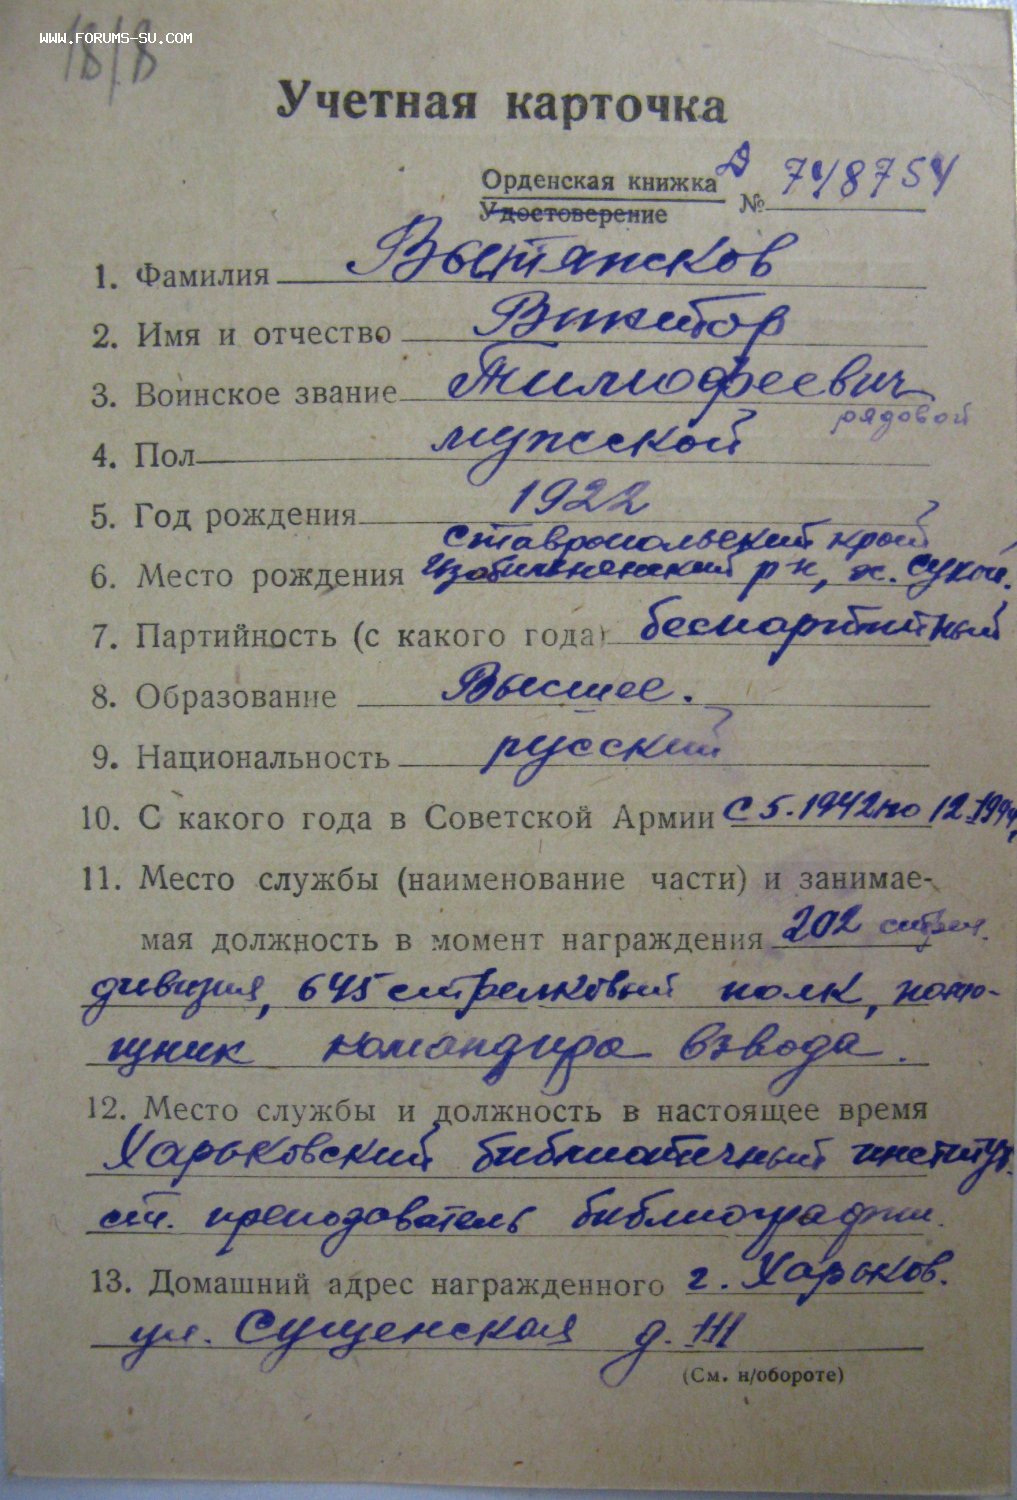 WWW.FORUMS-SU.COM
Учетная карточка
Орденская книжка Д № 748754
Удостоверение
1. Фамилия Вытяжков
2. Имя и отчество Виктор
3. Воинское звание Тимофеевич
рядовой
4. Пол мужской
5. Год рождения 1922
Ставропольский край
6. Место рождения Изобильненский р-н, х. Сухой.
7. Партийность (с какого года) беспартийный
8. Образование Высшее.
9. Национальность русский
10. С какого года в Советской Армии С 5.1942 по 12.1944
11. Место службы (наименование части) и занимае-
мая должность в момент награждения 202 стрел.
дивизия, 645 стрелковый полк, помо-
щник командира взвода.
12. Место службы и должность в настоящее время
Харьковский библиотечный институт.
ст. преподаватель библиографии.
13. Домашний адрес награжденного г. Харьков.
ул. Сущенская д.
(См. н/обороте)